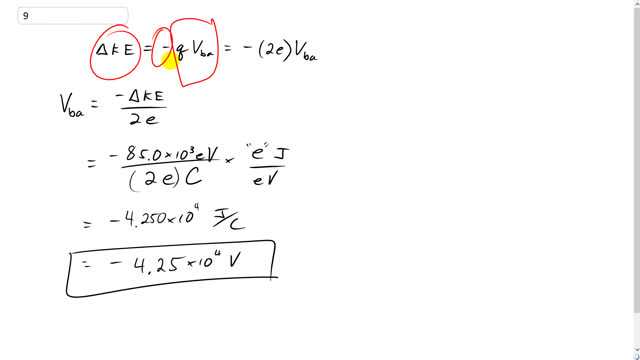 9
ΔKE = - q V_ba = - (2e) V_ba
V_ba = -ΔKE / 2e
= -85.0×10³ eV / (2e) C × "e" J / eV
= -4.250×10⁴ J/C
= - 4.25×10⁴ V